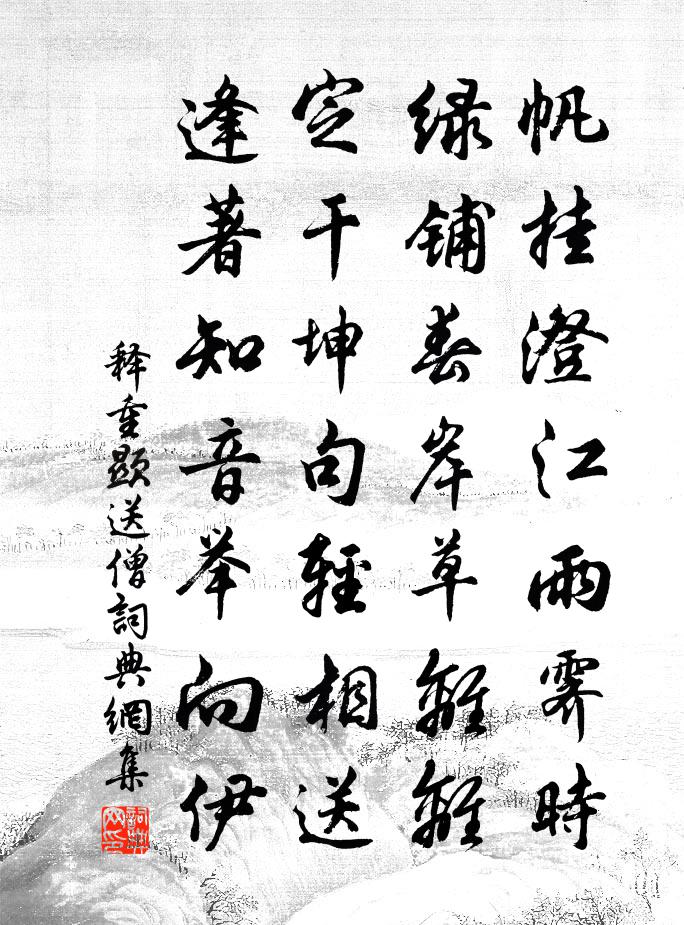 帆挂澄江雨霁時
绿铺春岸草離離
定干坤句輕相送
逢著知音举向伊
释重显送僧詞典網集